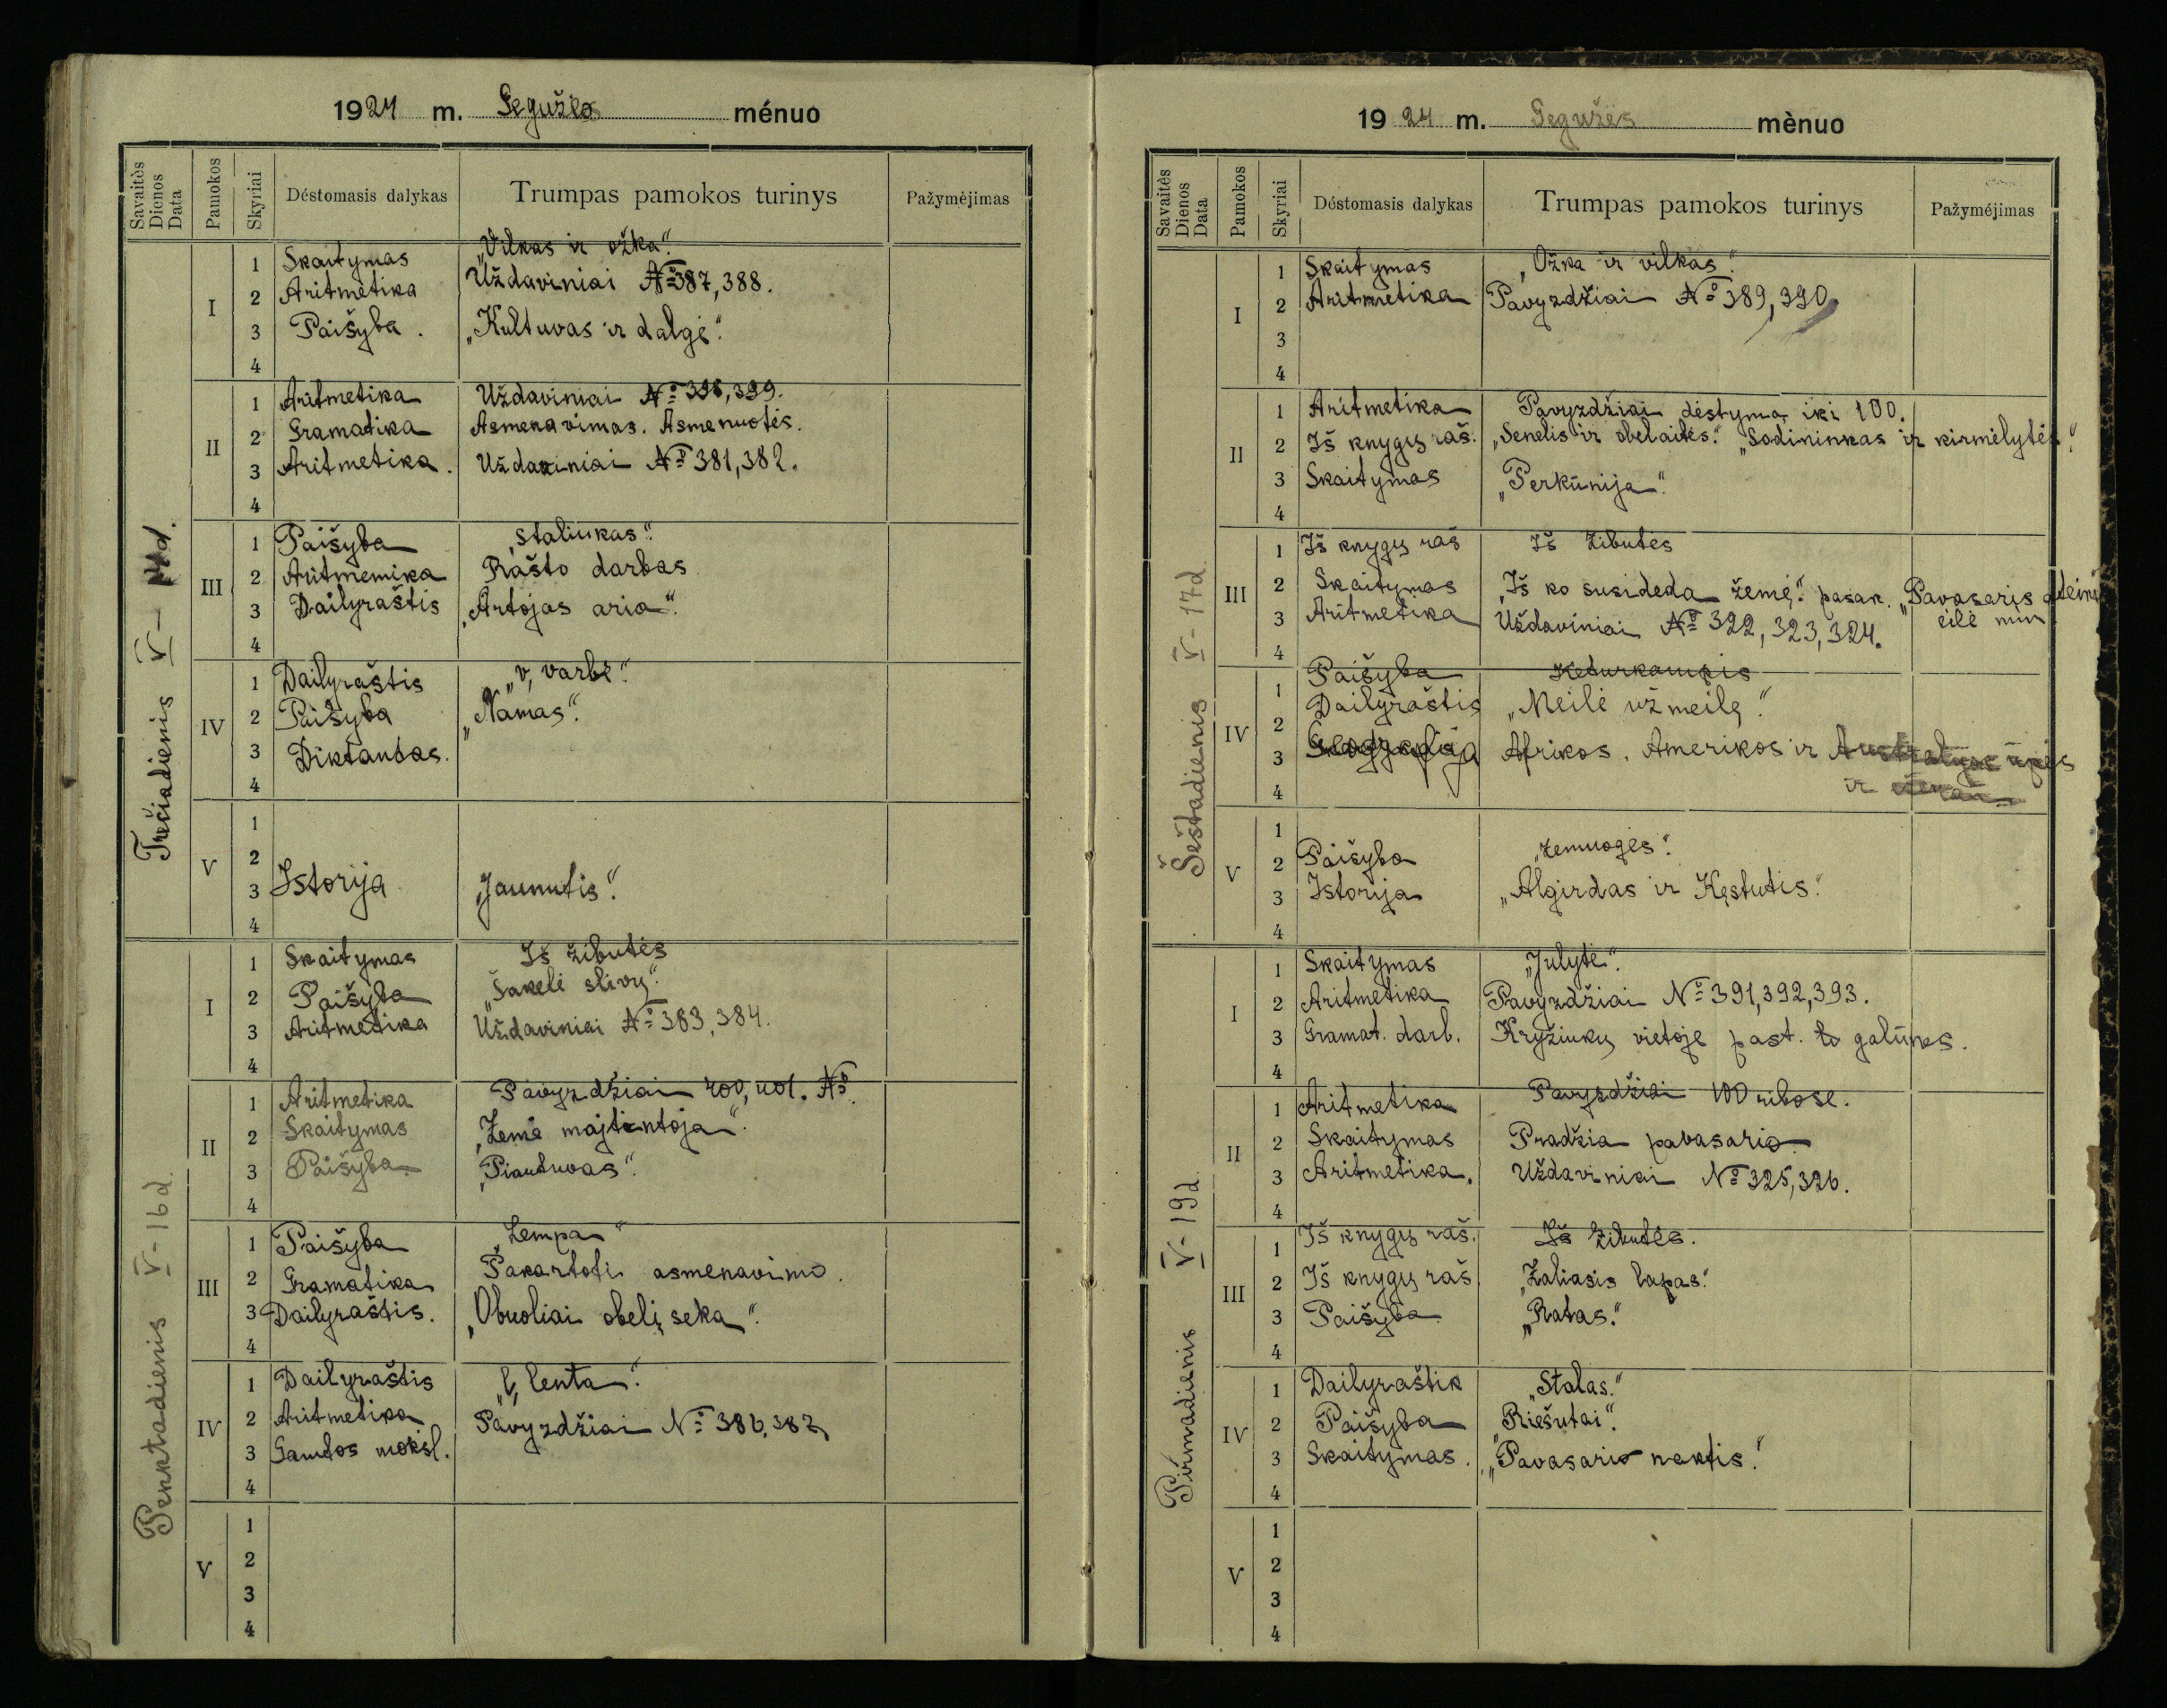 1924 m. Gegužės ménuo
Savaitės Dienos Data
Pamokos
Skyriai
Déstomasis dalykas
Trumpas pamokos turinys
Pažymėjimas
Trečiadienis V—
I
1 Skaitymas „Vilkas ir ožka“.
2 Aritmetika Uždaviniai № 387, 388.
3 Paišyba. „Kultuvas ir dalgė“.
4
II
1 Aritmetika Uždaviniai № 398, 399.
2 Gramatika Asmenavimas. Asmenuotės.
3 Aritmetika. Uždaviniai № 381, 382.
4
III
1 Paišyba „Staliukas“.
2 Aritmemika Rašto darbas
3 Dailyraštis „Artojas aria“.
4
IV
1 Dailyraštis „v, varbė“.
2 Paišyba „Namas“.
3 Diktantas.
4
V
1
2
3 Istorija „Jaunutis“.
4
Penktadienis V-16d.
I
1 Skaitymas Iš žibutės
2 Paišyba „Šakelė slivų“.
3 Aritmetika Uždaviniai № 383, 384.
4
II
1 Aritmetika Pavyzdžiai 400, 401. №.
2 Skaitymas „Žemė majtintoja“.
3 Paišyba „Piautuvas“.
4
III
1 Paišyba „Lempa“
2 Gramatika Pakartoti asmenavimo.
3 Dailyraštis. „Obuoliai obelį seka“.
4
IV
1 Dailyraštis „l, lenta“.
2 Aritmetika Pavyzdžiai № 386, 387
3 Gamtos moksl.
4
V
1
2
3
4
1924 m. Gegužės mėnuo
Savaitės Dienos Data
Pamokos
Skyriai
Déstomasis dalykas
Trumpas pamokos turinys
Pažyméjimas
Šeštadienis V-17d.
I
1 Skaitymas „Ožka ir vilkas“.
2 Aritmetika Pavyzdžiai № 389, 390
3
4
II
1 Aritmetika Pavyzdžiai dėstymą iki 100.
2 Iš knygų raš. „Senelis ir obelaitės“. „Sodininkas ir kirmėlytės“.
3 Skaitymas „Perkūnija“.
4
III
1 Iš knygų raš Iš žibutės
2 Skaitymas „Iš ko susideda žemė“. pasak. „Pavasaris ateina
eilė min
3 Aritmetika Uždaviniai № 322, 323, 324.
4
IV
1 Paišyba Keturkampis
2 Dailyraštis „Meilė už meilę“.
3 Geografija Afrikos, Amerikos ir Australijos upės
ir
4
V
1
2 Paišyba „Žemuogės“.
3 Istorija „Algirdas ir Kęstutis“.
4
Pirmadienis V-19d.
I
1 Skaitymas „Julytė“.
2 Aritmetika Pavyzdžiai № 391, 392, 393.
3 Gramat. darb. Kryžiukų vietoje past. galūnes.
4
II
1 Aritmetika Pavyzdžiai 100 ribose.
2 Skaitymas Pradžia pavasario
3 Aritmetika. Uždaviniai № 325, 326.
4
III
1 Iš knygų raš. Iš žibutės.
2 Iš knygų raš „Žaliasis lapas“.
3 Paišyba „Ratas“.
4
IV
1 Dailyraštik „Stalas“.
2 Paišyba „Riešutai“.
3 Skaitymas. „Pavasario naktis“.
4
V
1
2
3
4